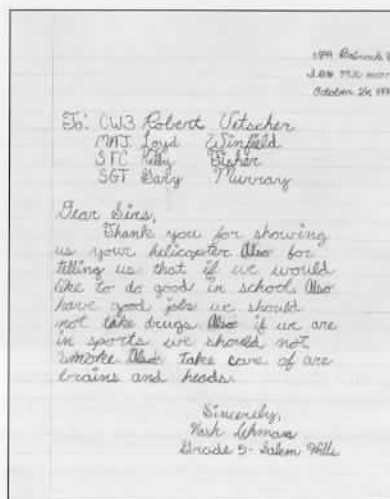 October 26, 19
To: CW3 Robert Vetscher
MAJ. Loyd Winfield
SFC Kelly Fisher
SGT Gary Murray
Dear Sirs,
Thank you for showing
us your helicopter Also for
telling us that if we would
like to do good in school Also
have good jobs we should
not take drugs Also if we are
in sports we should not
smoke Also take care of are
brains and heads.
Sincerely,
Lehman
Grade 5- Salem Hills